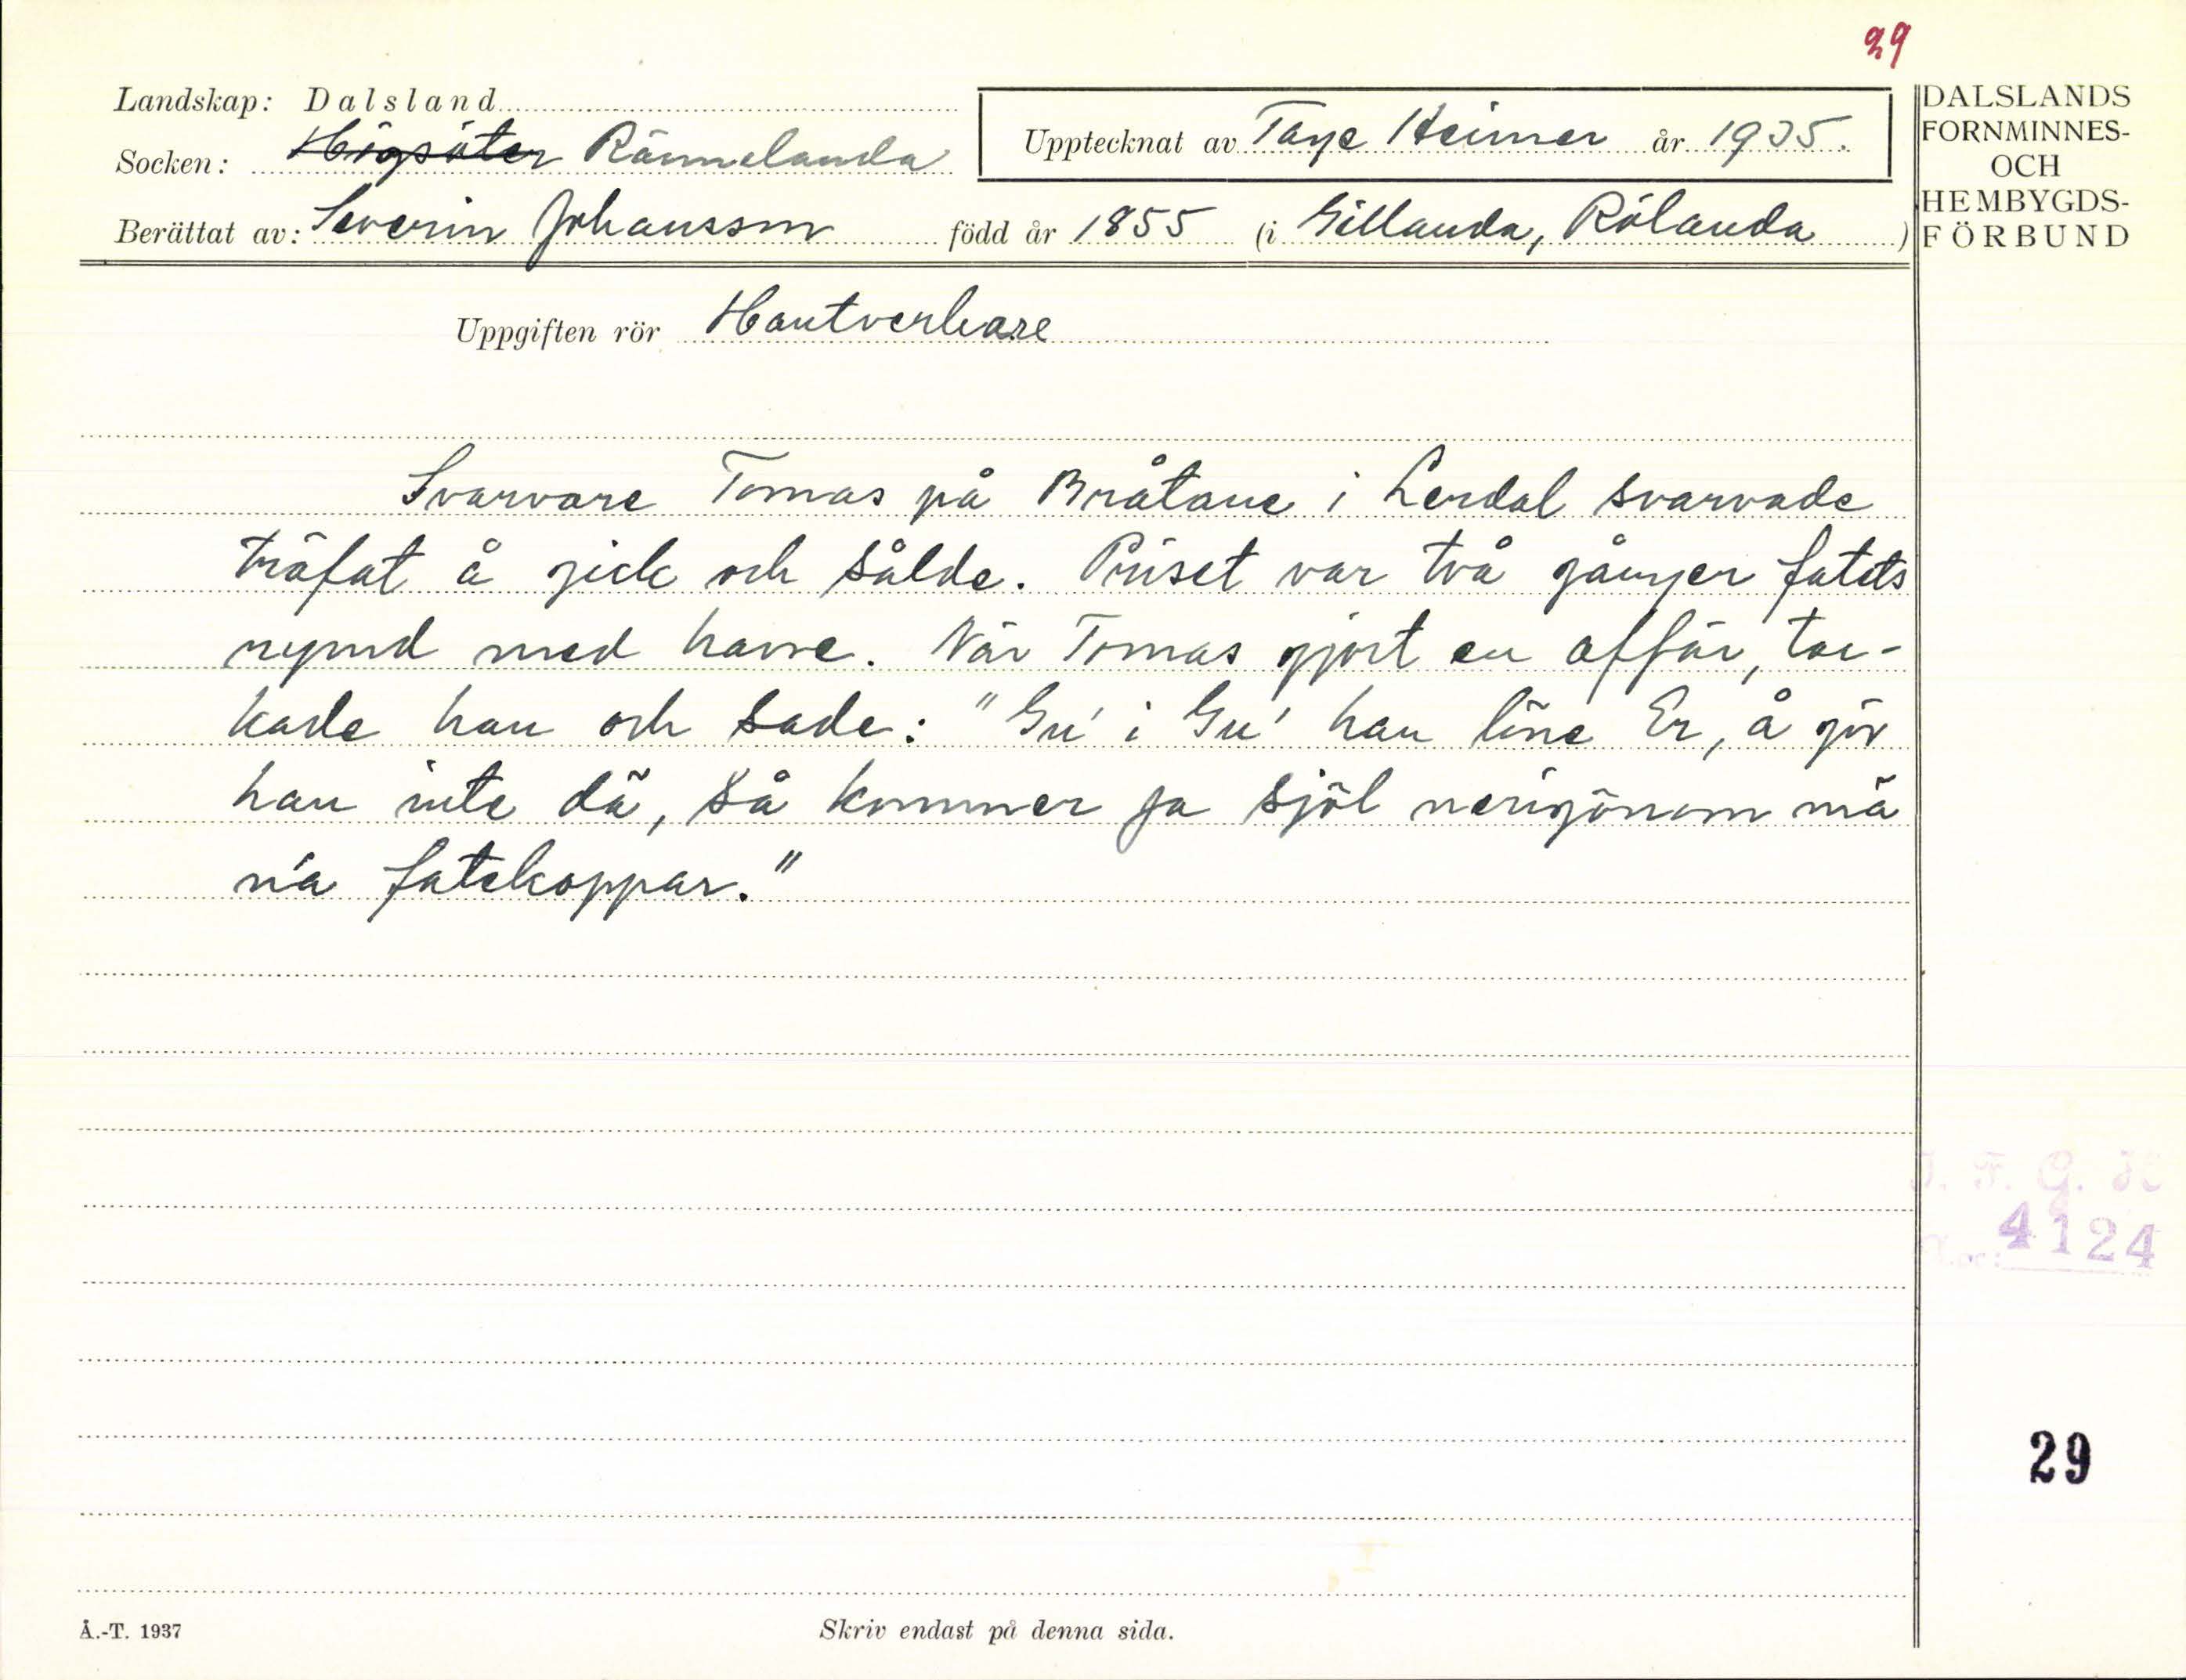 29
Landskap: Dalsland
Socken: Högsäter Rännelanda
Upptecknat av Tage Heimer år 1935.
Berättat av: Severin Johansson född år 1855 (i Gillanda, Rölanda)
DALSLANDS
FORNMINNES-
OCH
HEMBYGDS-
FÖRBUND
Uppgiften rör Hantverkare
Svarvare Tomas på Bråtane i Lerdal svarvade
träfat å gick och sålde. Priset var två gånger fatets
rymd med havre. När Tomas gjort en affär, tac-
kade han och sade: "Gu' i Gu' han löne Er, å gör
han inte dä, så kommer ja sjöl nerigönom mä
n'a fatekoppar."
I. F. G. H
4124
29
Å.-T. 1937
Skriv endast på denna sida.